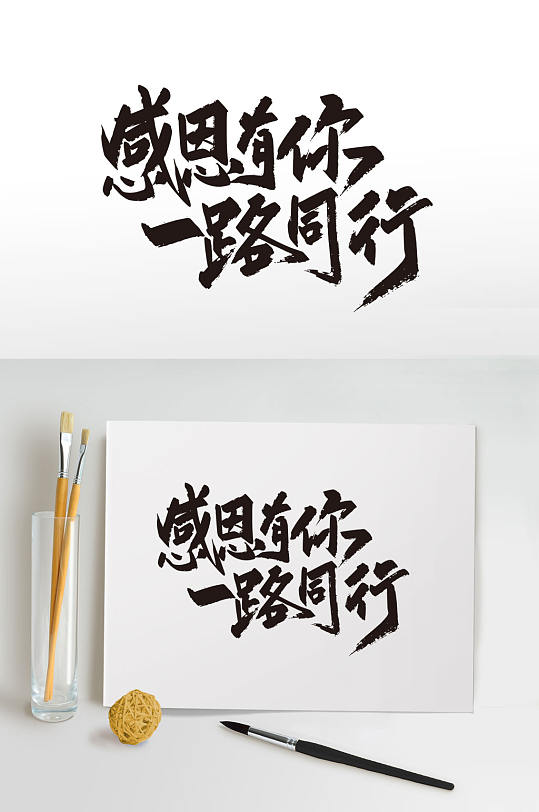 感恩有你
一路同行
感恩有你
一路同行